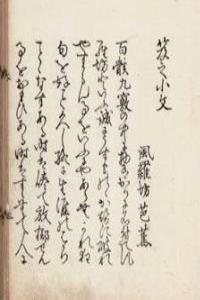 笈之小文
風羅坊 芭蕉
百骸九竅の中に物有かりに名付て風
羅坊といふ誠にうすものゝかせに破れ
やすからん事をいふにやあらむかれ狂
句を好こと久し終に生涯のはかり
ことゝなすある時は倦て放擲せん
事をおもひある時はすゝむて人に